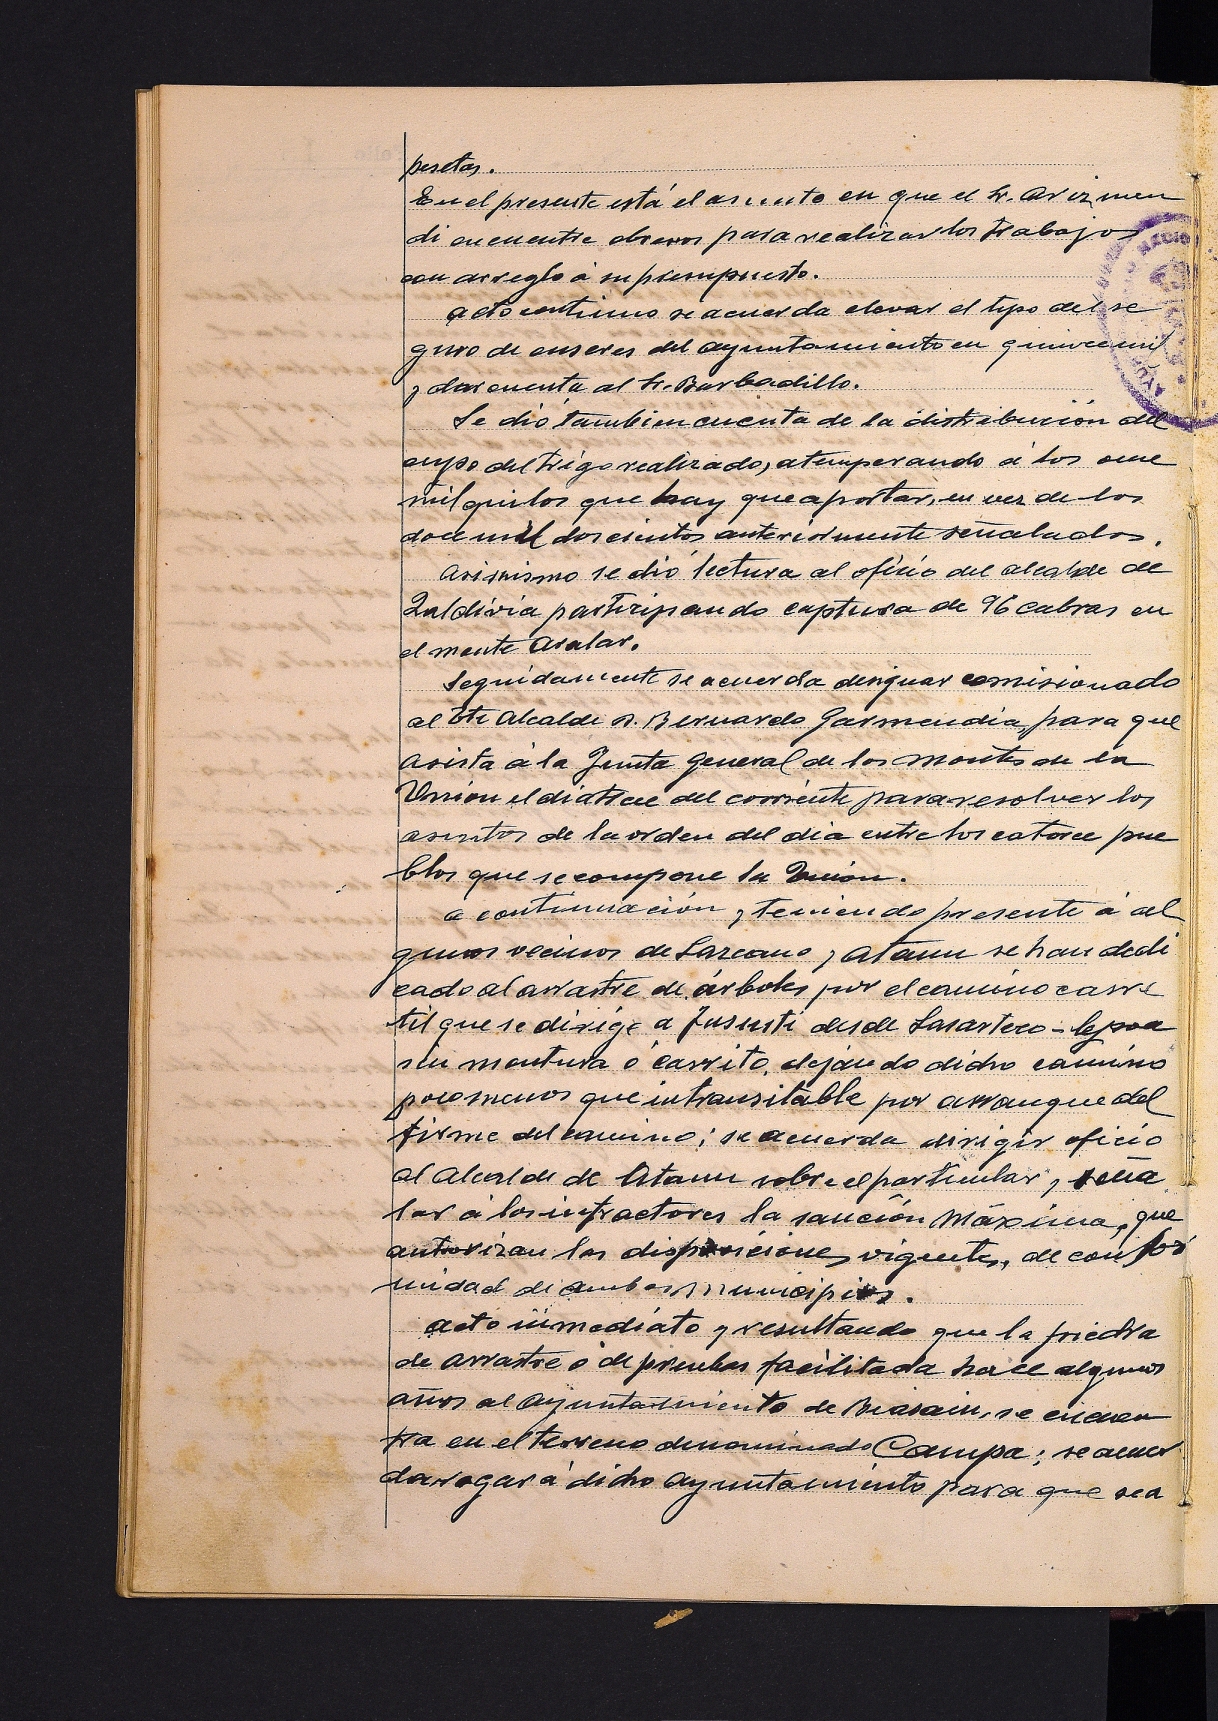 pesetas.
En el presente está el asunto en que el Sr. Arizmen
di encuentre obreros para realizar los trabajos
con arreglo á su presupuesto.
acto contínuo se acuerda elevar el tipo del se
guro de enseres del ayuntamiento en quince mil
y dar cuenta al Sr. Barbadillo.
Se dió tambien cuenta de la distribución del
cupo del trigo realizado, atemperando á los once
mil quilos que hay que aportar, en vez de los
doce mil doscientos anteriormente señalados.
Asimismo se dió lectura al oficio del alcalde de
Zaldivia participando captura de 96 cabras en
el monte Aralar.
Seguidamente se acuerda designar comisionado
al Tte Alcalde D. Bernardo Garmendia, para que
asista á la Junta General de los montes de la
Unión el dia trece del corriente para resolver los
asuntos de la orden del dia entre los catorce pue
blos que se compone la Unión.
a continuación y teniendo presente á al
gunos vecinos de Lazcano y Ataun se han dedi
cado al arrastre de árboles por el camino carre
til que se dirige a Jususti desde Lasarteco-lepoa
sin montura ó carrito, dejándo dicho camino
poco menos que intransitable por arranque del
firme del camino; se acuerda dirigir oficio
al Alcalde de Ataun sobre el particular y seña
lar á los infractores la sanción máxima, que
autorizan las disposiciones vigentes, de confor
midad de ambos municipios.
acto inmediáto y resultando que la piedra
de arrastre ó de pruebas facilitada hace algunos
años al ayuntamiento de Beasain, se encuen
tra en el terreno denominado Campa; se acuer
da rogar á dicho ayuntamiento para que sea